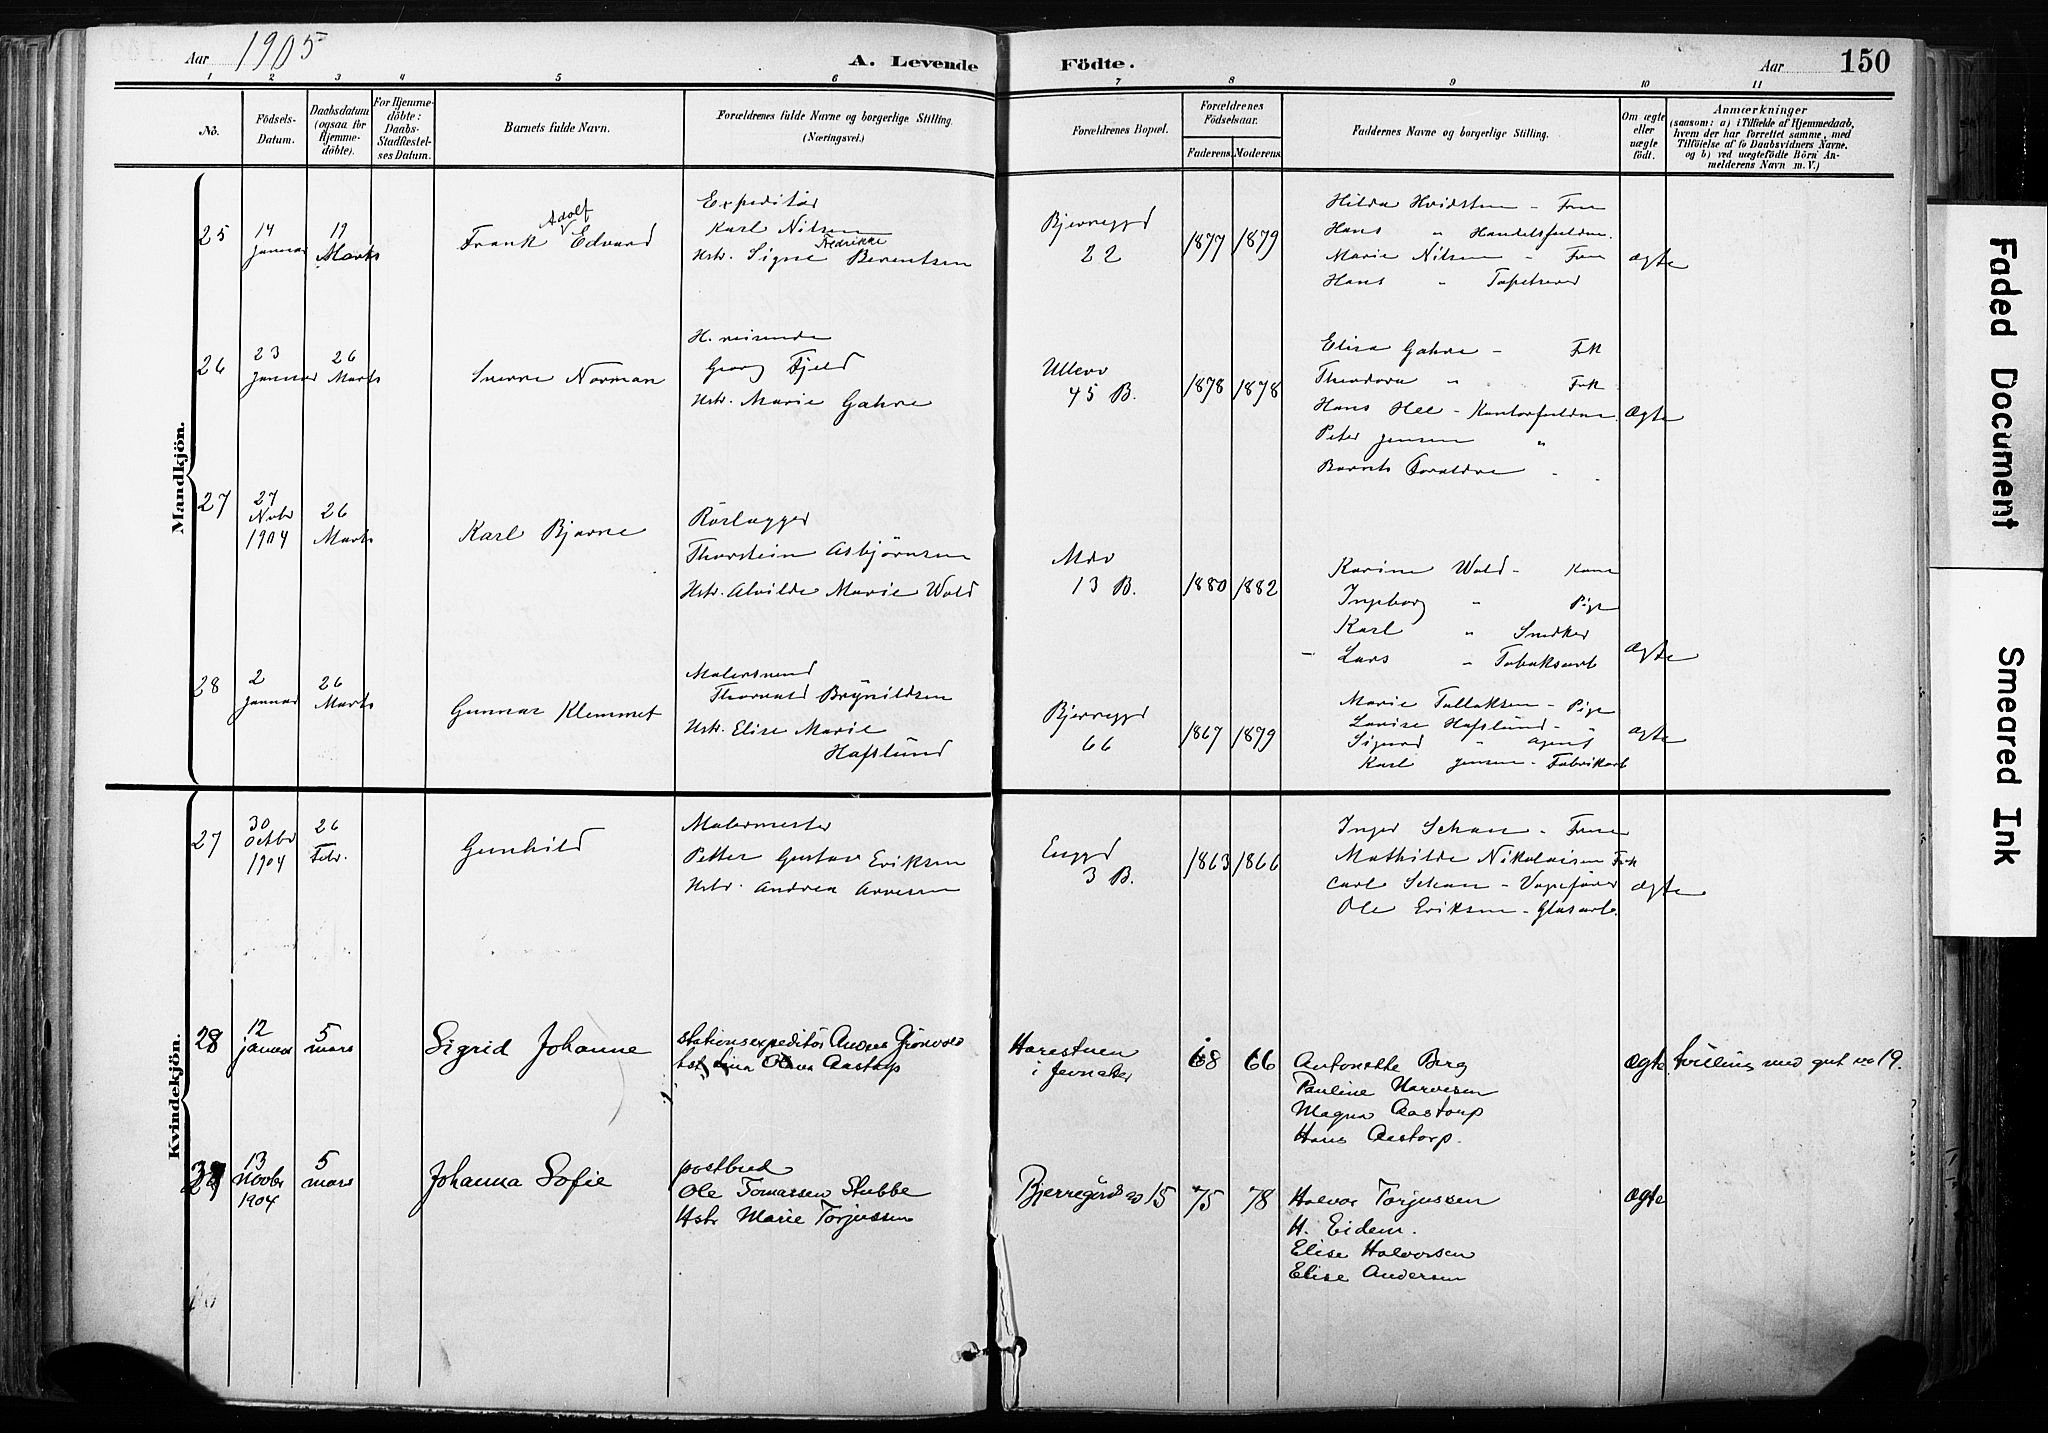 Aar 1905 A. Levende Födte. Aar 150
1 2 3 4 5 6 7 8 9 10 11
No.
Födsels-
Datum.
Daabsdatum
(ogsaa for
Hjemme-
döbte).
For Hjemme-
döbte:
Daabs-
Stadfæstel-
ses Datum.
Barnets fulde Navn.
Forældrenes fulde Navne og borgerlige Stilling
(Næringsvei.)
Forældrenes Bopæl.
Forældrenes
Födselsaar.
Faderens. Moderens.
Faddernes Navne og borgerlige Stilling.
Om ægte
eller
uægte
födt.
Anmærkninger
(saasom: a) i Tilfælde af Hjemmedaab,
hvem der har forrettet samme, med
Tilföielse af to Daabsvidners Navne,
og b) ved uægtefödte Börn An-
melderens Navn m. V.)
Mandkjön.
25
14
Januar
19
Marts
Adolf
Frank Edvard
Expeditör
Karl Nilsen
Fredrikke
Hstr. Signe Berentsen
Bjerregd
22
1877 1879
Hilda Hvidsten - Frue
Hans " Handelsfuldm.
Marie Nilsen - Frue
Hans " Tapetserer
Ægte
26
23
Januar
26
Marts
Sverre Norman
H. reisende
Georg Fjeld
Hstr. Marie Gahre
Ullevv
45 B.
1878 1878
Elisa Gahre - Frk
Theodora " Frk
Hans Hee - Kontorfuldm.
Peter Jensen "
Barnets Foraldre
Ægte
27
27
Novbr
1904
26
Marts
Karl Bjarne
Rörlægger
Thorstein Asbjörnsen
Hstr. Alvilde Marie Wold
13 B.
1880 1882
Karine Wold - Kone
Ingeborg " Pige
Karl " Snedker
- Lars " Tobaksarb
Ægte
28
2
Januar
26
Marts
Gunnar Klemmet
Malersvend
Thorvald Brynildsen
Hstr. Elise Marie
Hafslund
Bjerregd
66
1867 1879
Marie Tollaksen - Pige
Lovise Hafslund - "
Sigurd " Agent
Karl Jensen - Fabrikarb
Ægte
Kvindekjön.
27
30
Octbr
1904
26
Febr.
Gunhild
Malermester
Petter Gustav Eriksen
Hstr. Andrea Arvesen
Enggd
3 B.
1863 1866
Inger Schau - Frue
Mathilde Nikolaisen Frk
Carl Schau - Vognfører
Ole Eriksen - Glasarb.
Ægte
28
12
januar
5
mars
Sigrid Johanne
Stationsexpeditör Anders Grönvold
hst. Lina Olava Aastorp
Harestuen
i Jevnaker
68 66
Antonette Berg
Pauline Narvesen
Magna Aastorp
Hans Aastorp.
Ægte
tvilling med gut no 19.
13
Novbr
1904
5
mars
Johanna Sofie
postbud
Ole Tomassen Stubbe
Hstr Marie Torjussen
Bjerregdrds no 15
75 78
Halvor Torjussen
H. Eidem.
Elise Halvorsen
Elise Andersen
Ægte
Faded Document
Smeared Ink